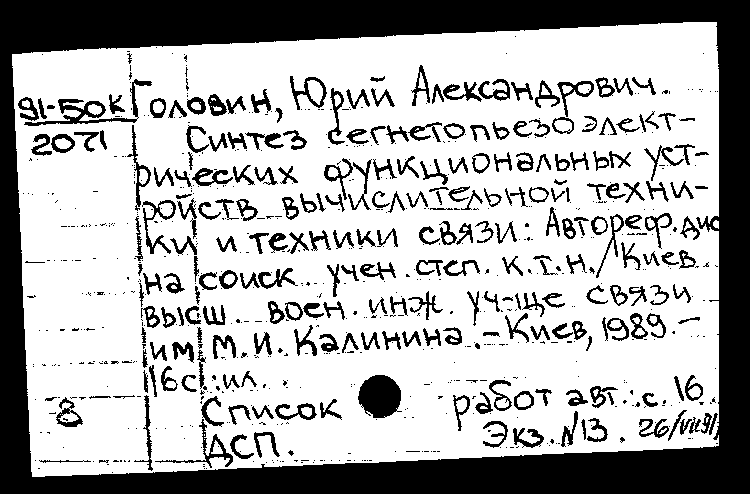 91-50к Головин, Юрий Александрович.
2071 Синтез сегнетопьезоэлект-
рических функциональных уст-
ройств вычислительной техни-
ки и техники связи: Автореф. дис
на соиск. учен. степ. к.т.н. / Киев.
высш. воен. инж. уч-ще связи
им. М.И. Калинина. - Киев, 1989. -
16с.: ил.
8 Список работ авт.: с. 16
ДСП. Экз. №13. 26/VII91